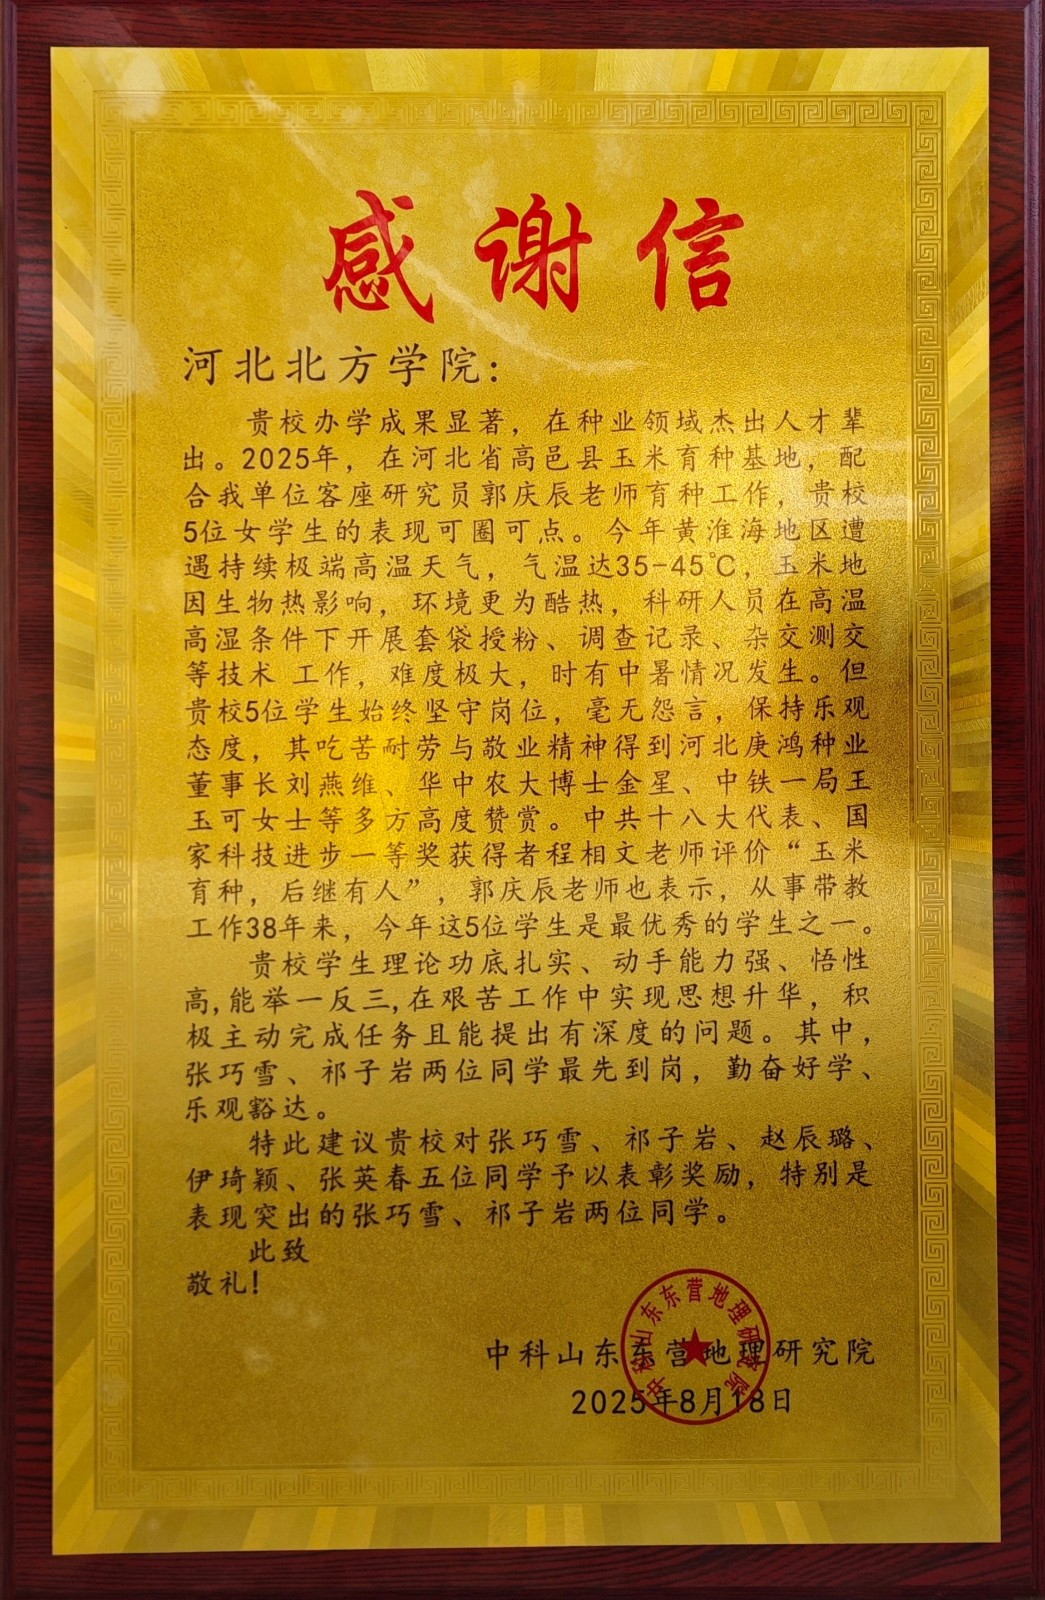 感谢信
河北北方学院：
贵校办学成果显著，在种业领域杰出人才辈
出。2025年，在河北省高邑县玉米育种基地，配
合我单位客座研究员郭庆辰老师育种工作，贵校
5位女学生的表现可圈可点。今年黄淮海地区遭
遇持续极端高温天气，气温达35-45℃，玉米地
因生物热影响，环境更为酷热，科研人员在高温
高湿条件下开展套袋授粉、调查记录、杂交测交
等技术 工作，难度极大，时有中暑情况发生。但
贵校5位学生始终坚守岗位，毫无怨言，保持乐观
态度，其吃苦耐劳与敬业精神得到河北庚鸿种业
董事长刘燕维、华中农大博士金星、中铁一局王
玉可女士等多方高度赞赏。中共十八大代表、国
家科技进步一等奖获得者程相文老师评价“玉米
育种，后继有人”，郭庆辰老师也表示，从事带教
工作38年来，今年这5位学生是最优秀的学生之一。
贵校学生理论功底扎实、动手能力强、悟性
高,能举一反三,在艰苦工作中实现思想升华，积
极主动完成任务且能提出有深度的问题。其中，
张巧雪、祁子岩两位同学最先到岗，勤奋好学、
乐观豁达。
特此建议贵校对张巧雪、祁子岩、赵辰璐、
伊琦颖、张英春五位同学予以表彰奖励，特别是
表现突出的张巧雪、祁子岩两位同学。
此致
敬礼！
中科山东东营地理研究院
2025年8月18日
中科山东东营地理研究院